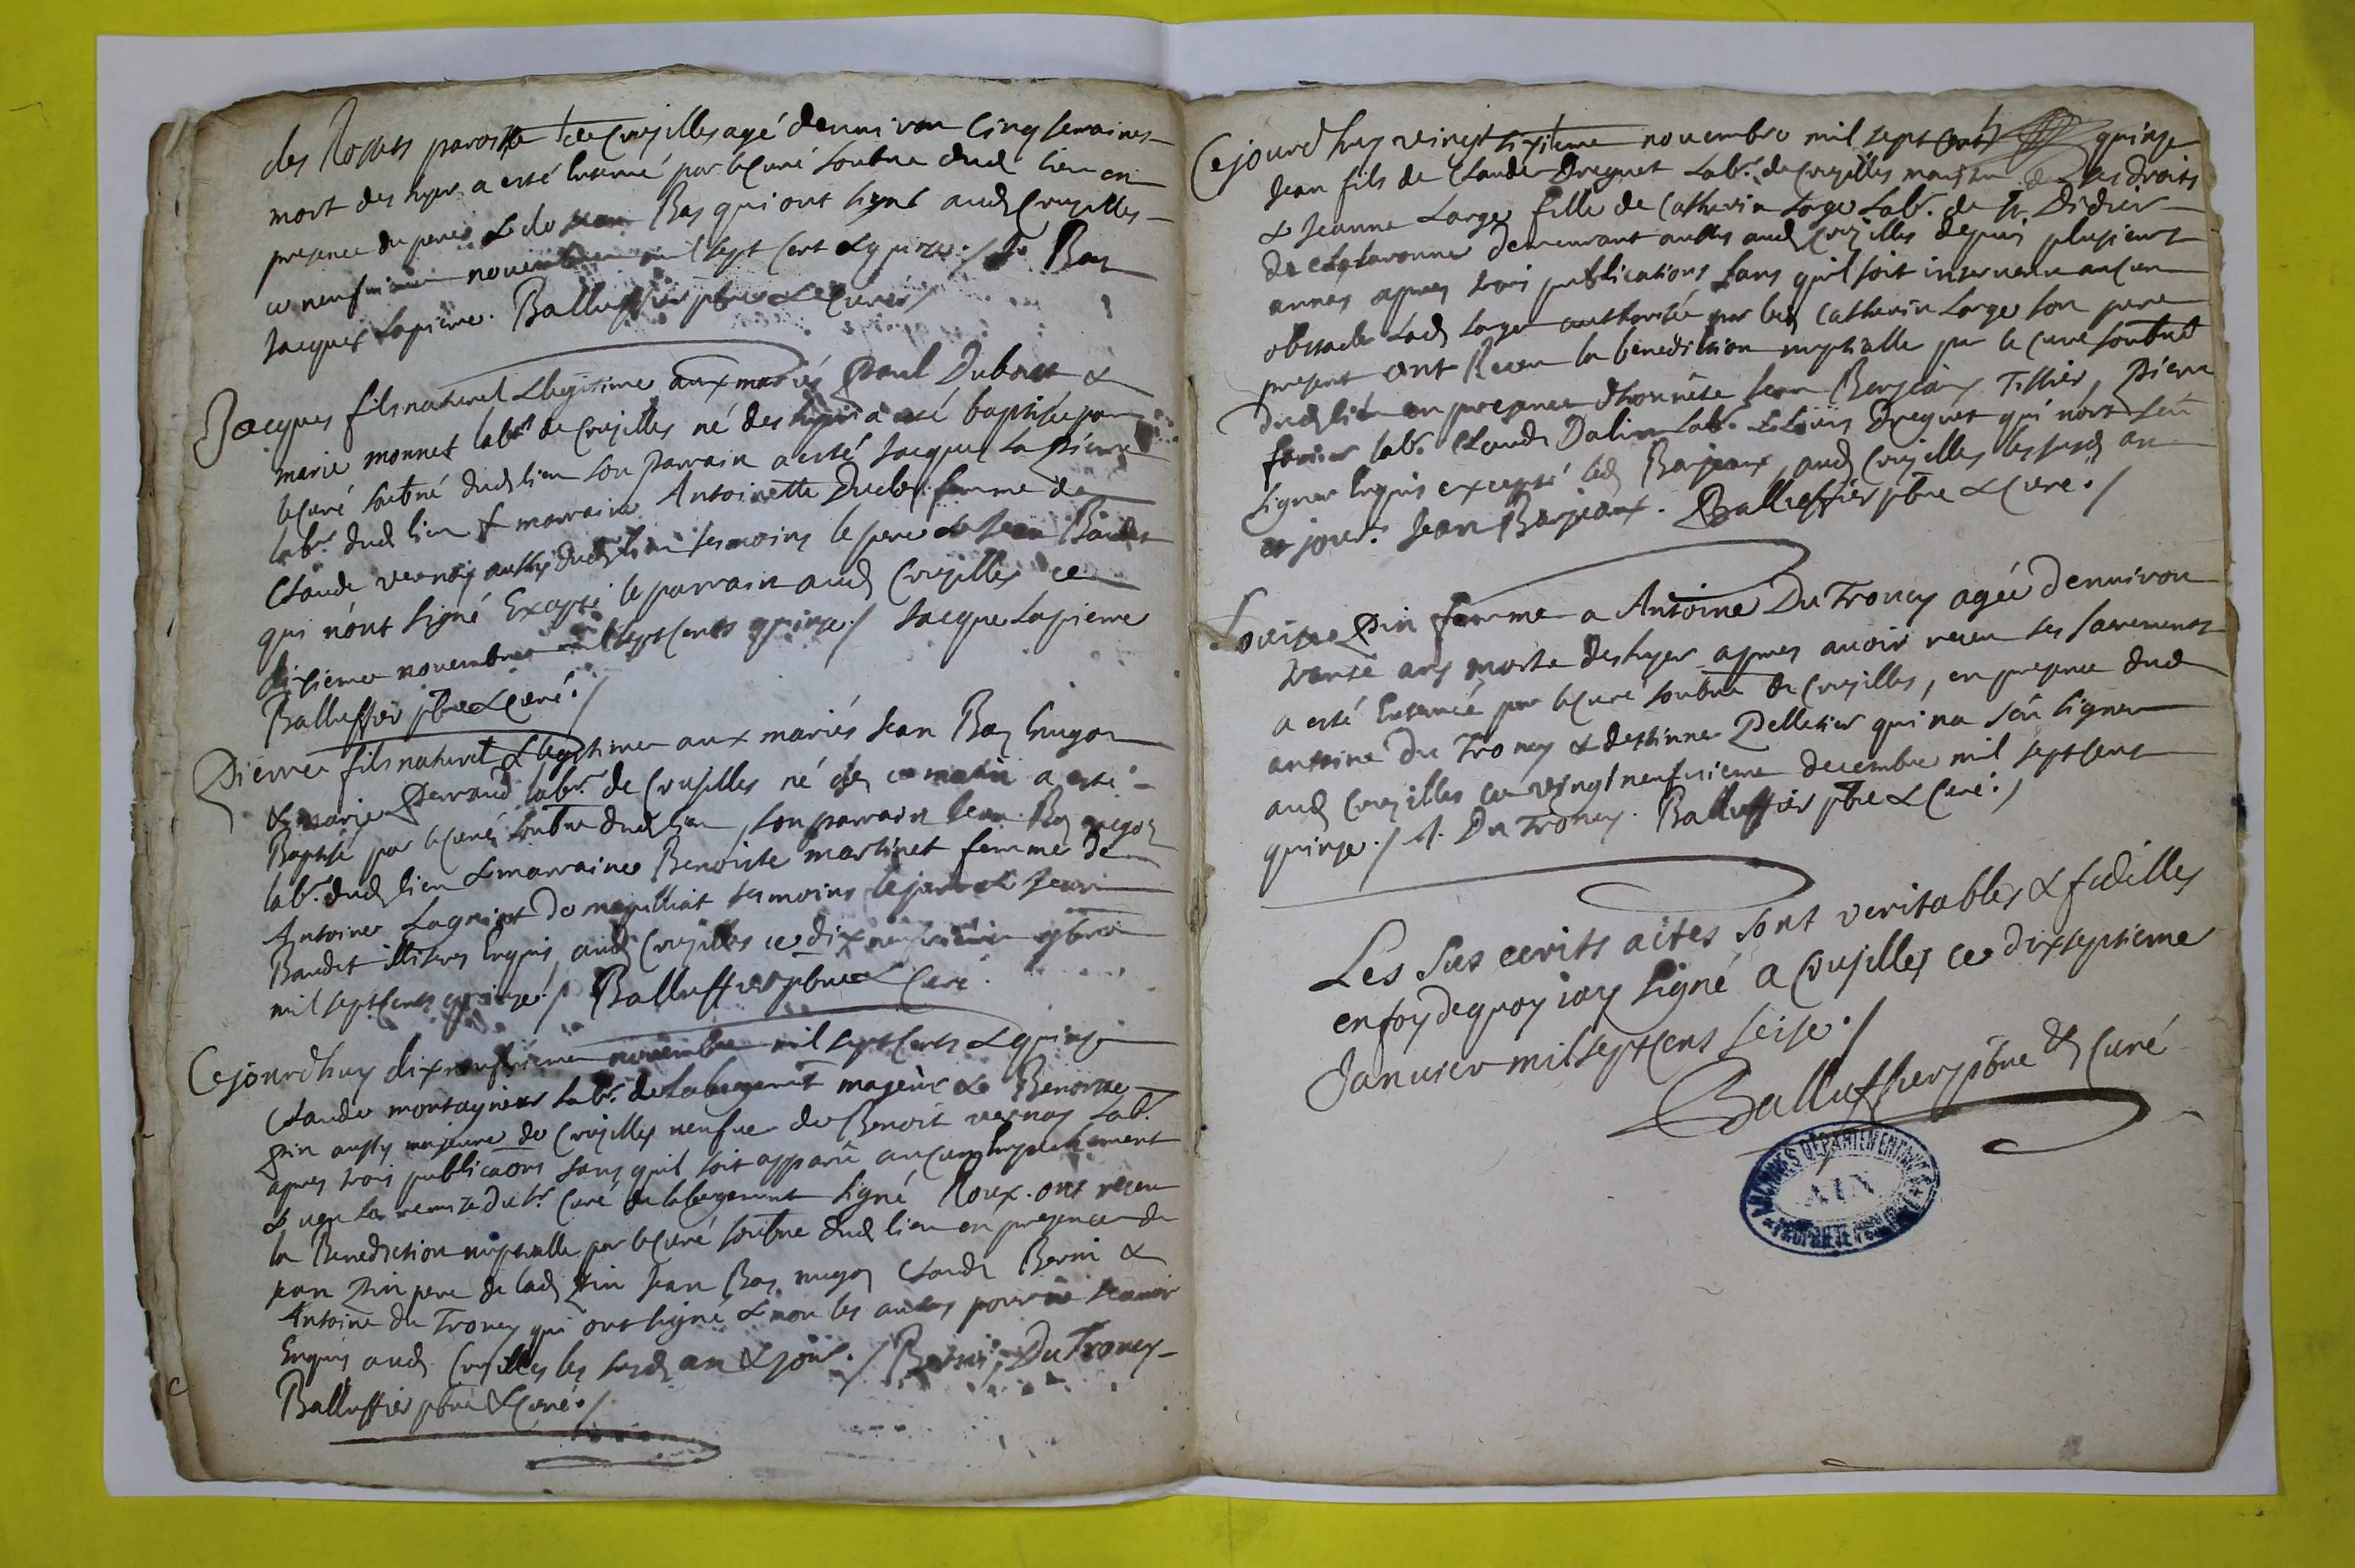 des Royets paroisse de Crusilles agé denuiron Cinq semaines
mort des hyer a esté Enterré par le Curé soubne dud lieu en
presence du pere & de Jean Bas qui ont signé aud Crusilles
ce neufuieme nouembre mil sept cent & quinze ./ J. Bas
Jacques Lapierre. Balluffier pbre & Curé /
Jacques fils naturel & legitime aux mariés Paul Dubost &
marie monnet labrs de Crusilles né des hyer a esté baptisé par
le Curé soubné dud lieu son parrain a esté Jacques La Pierre
labr. dud lieu & marraine Antoinette Duclos femme de
Claude vernay aussy dud lieu tesmoins le pere & Jean Baudet
qui n'ont signé Excepté le parrain aud Crusilles ce
dixieme nouembre mil sept Cents quinze ./ Jacque Lapierre
Balluffier pbre & Curé ./
Pierre fils naturel & legitime aux mariés Jean Bas
& marie Perraud labr. de Crusilles né des ce matin a esté
Baptisé par le Curé soubne dud lieu, son parrain Jean Bas
labr. dud lieu & marraine Benoiste martinet femme de
Antoine de tesmoins le pere & Jean
Baudet illiteres Enquis, aud Crusilles ce dix neufuieme 9bre
mil sept Cents quinze ./ Balluffier pbre & Curé
Cejourdhuy dix neufuieme nouembre mil sept Cents & quinze
Claude montagnieu labr. de labergement majeur & Benoiste
Pin aussy majeure de Crusilles veufue de Benoit vernay labr.
apres trois publicaons sans quil soit apparü aucun Empechement
& veu la remise du Sr. Curé de labergement signé Roux. ont receu
la Benediction nuptialle par le Curé soubne dud lieu en presence de
Jean Pin pere de lad Pin Jean Bas Claude Berni &
Antoine du Troncy qui ont signé & non les autres pour ne scauoir
Enquis aud Crusilles les susd an & jour. / Berni, Du Troncy
Balluffier pbre & Curé ./
Cejourdhuy vingt sixieme nouembre mil sept Cent quinze
Jean fils de Claude Dreguet Labr. de Crusilles maistre de ses droits
& Jeanne Large fille de Catherin Large Labr. de St. Didier
de Chalaronne demeurant aussy aud Crusilles depuis plusieurs
annés apres trois publications sans quil soit interuenu aucun
obstacle Lad Large authorisée par led Catherin Large son pere
present ont Receu la benediction nuptialle par le Curé soubné
dud lieu en presence dhonnéte Jean Barjeaux Tissier, Pierre
labr. Claude Dalin Labr. & Louis Dreguet qui n'ont sçeu
signer Enquis excepté led Barjeaux, aud Crusilles les susd an
et jour. Jean Barjeaux. Balluffier pbre & Curé ./
Louise Pin femme a Antoine Du Troncy agée denuiron
trente ans morte des hyer apres auoir receu ses sacrements
a esté Enterrée par le Curé soubné de Crusilles, en presence dud
antoine du Troncy & destienne Pelletier qui na sçeu signer
aud Crusilles ce vingt neufuieme decembre mil sept cent
quinze ./ A. Du Troncy. Balluffier pbre & Curé ./
Les sus ecrits actes sont veritables & fidelles
en foy de quoy iay signé a Crusilles ce dixseptieme
Januier mil sept Cent seise ./
Balluffier pbre & Curé
ARCHIVES DÉPARTEMENTALES
AIN
PROPRIÉTÉ PUBLIQUE